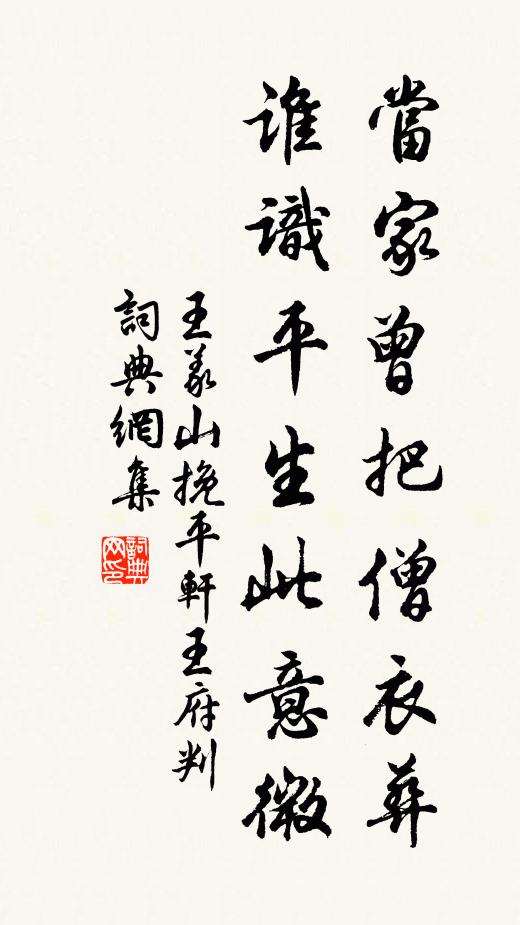 當家曾把僧衣葬
誰識平生此意微
王義山挽平軒王府判
詞典網集
詞典网印